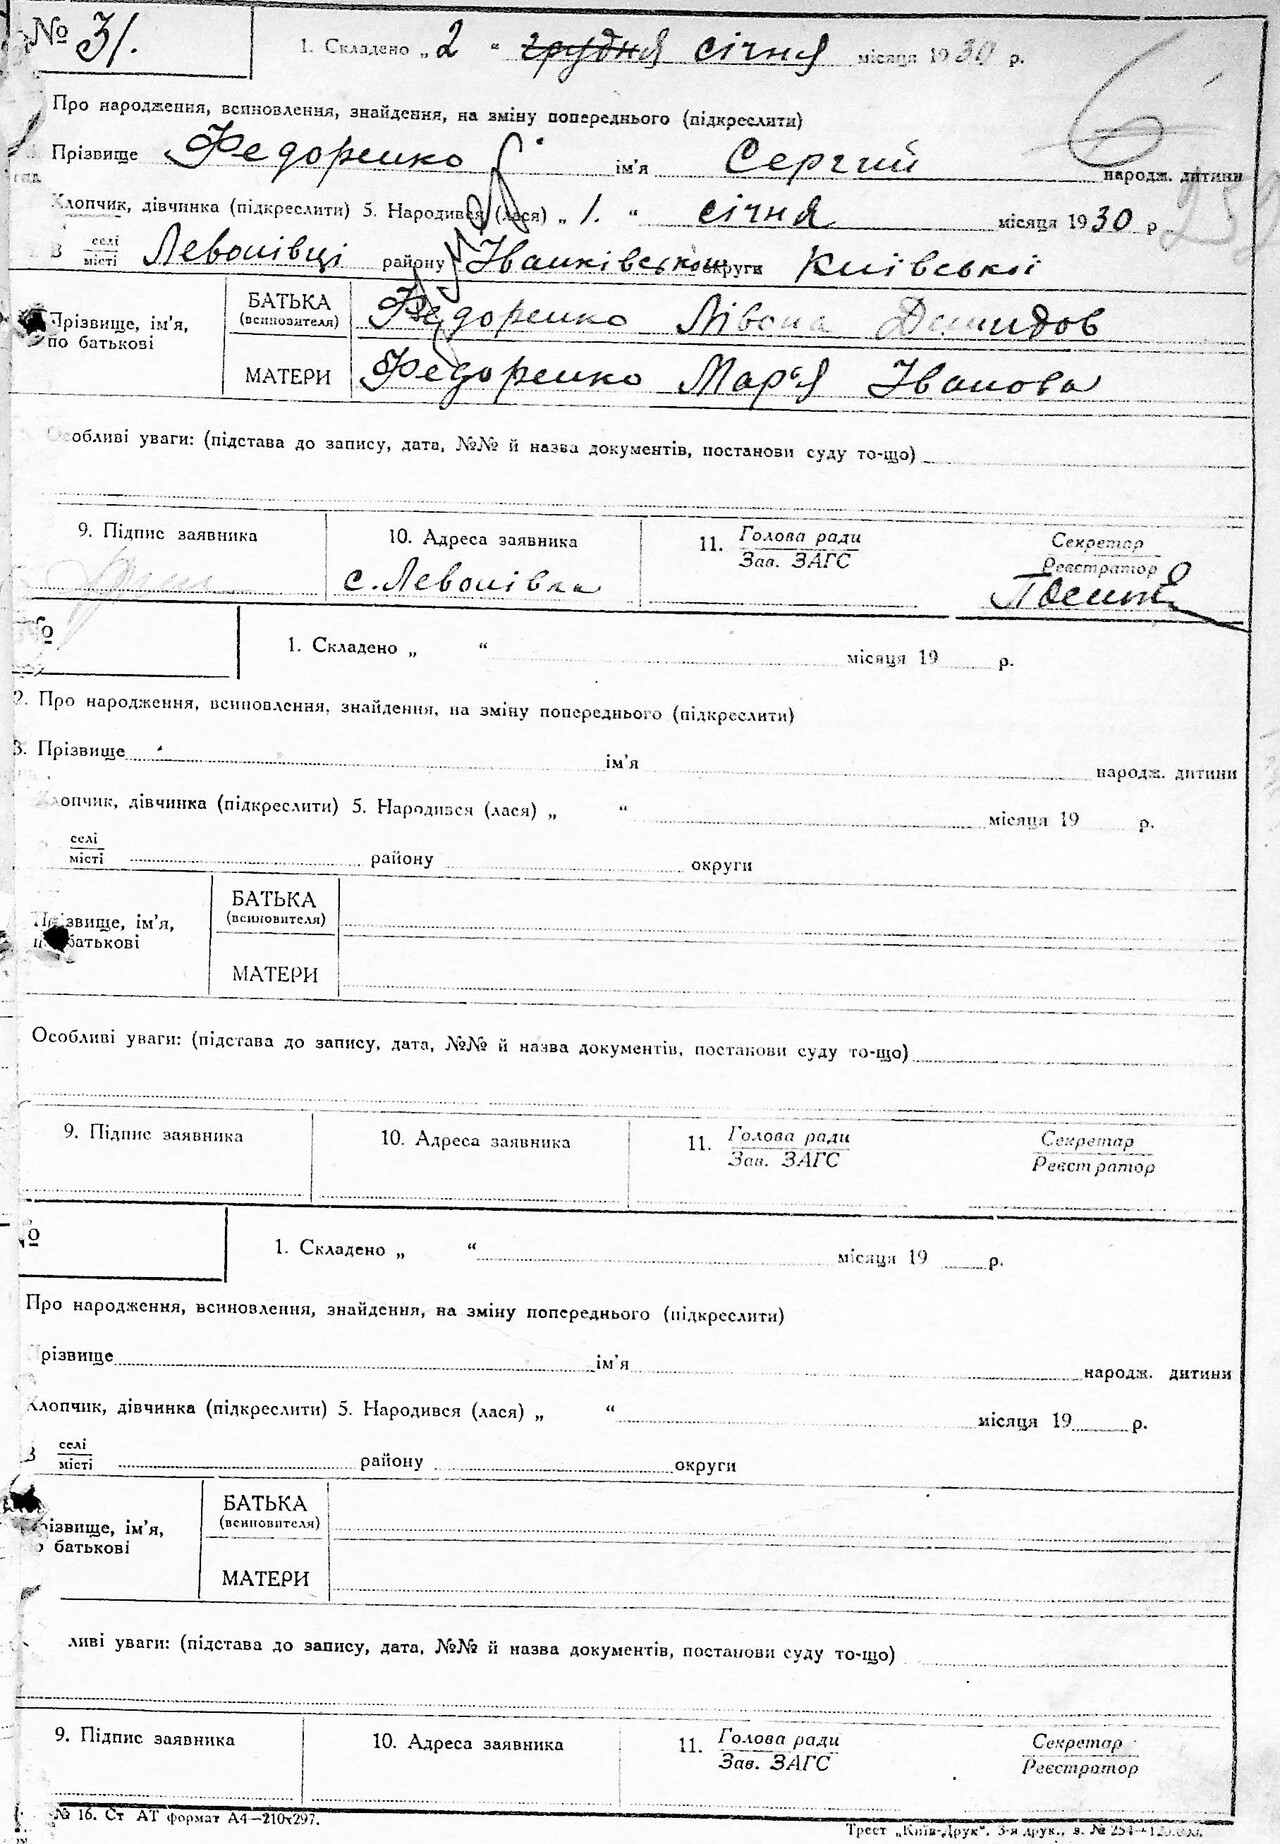 № 31.
1. Складено „ 2 “ грудня січня місяця 1930 р.
Про народження, всиновлення, знайдення, на зміну попереднього (підкреслити)
Прізвище Федоренко ім'я Сергий народж. дитини
Хлопчик, дівчинка (підкреслити) 5. Народився (лася) „ 1. “ січня місяця 1930 р
В селі/місті Леонівці району Іванківськом округи Київської
Прізвище, ім'я, по батькові
БАТЬКА (всиновителя) Федоренко Лівона Демидов
МАТЕРИ Федоренко Мар'я Іванова
Особливі уваги: (підстава до запису, дата, №№ й назва документів, постанови суду то-що)
9. Підпис заявника
10. Адреса заявника
11. Голова ради / Зав. ЗАГС
Секретар / Реєстратор
с. Леонівка
№
1. Складено „ “ місяця 19 р.
2. Про народження, всиновлення, знайдення, на зміну попереднього (підкреслити)
3. Прізвище ім'я народж. дитини
Хлопчик, дівчинка (підкреслити) 5. Народився (лася) „ “ місяця 19 р.
селі/місті району округи
Прізвище, ім'я, по батькові
БАТЬКА (всиновителя)
МАТЕРИ
Особливі уваги: (підстава до запису, дата, №№ й назва документів, постанови суду то-що)
9. Підпис заявника
10. Адреса заявника
11. Голова ради / Зав. ЗАГС
Секретар / Реєстратор
№
1. Складено „ “ місяця 19 р.
Про народження, всиновлення, знайдення, на зміну попереднього (підкреслити)
Прізвище ім'я народж. дитини
Хлопчик, дівчинка (підкреслити) 5. Народився (лася) „ “ місяця 19 р.
В селі/місті району округи
Прізвище, ім'я, по батькові
БАТЬКА (всиновителя)
МАТЕРИ
ливі уваги: (підстава до запису, дата, №№ й назва документів, постанови суду то-що)
9. Підпис заявника
10. Адреса заявника
11. Голова ради / Зав. ЗАГС
Секретар / Реєстратор
№ 16. Ст АТ формат А4—210x297.
Трест „Київ-Друк“. 3-я друк., з. № 254